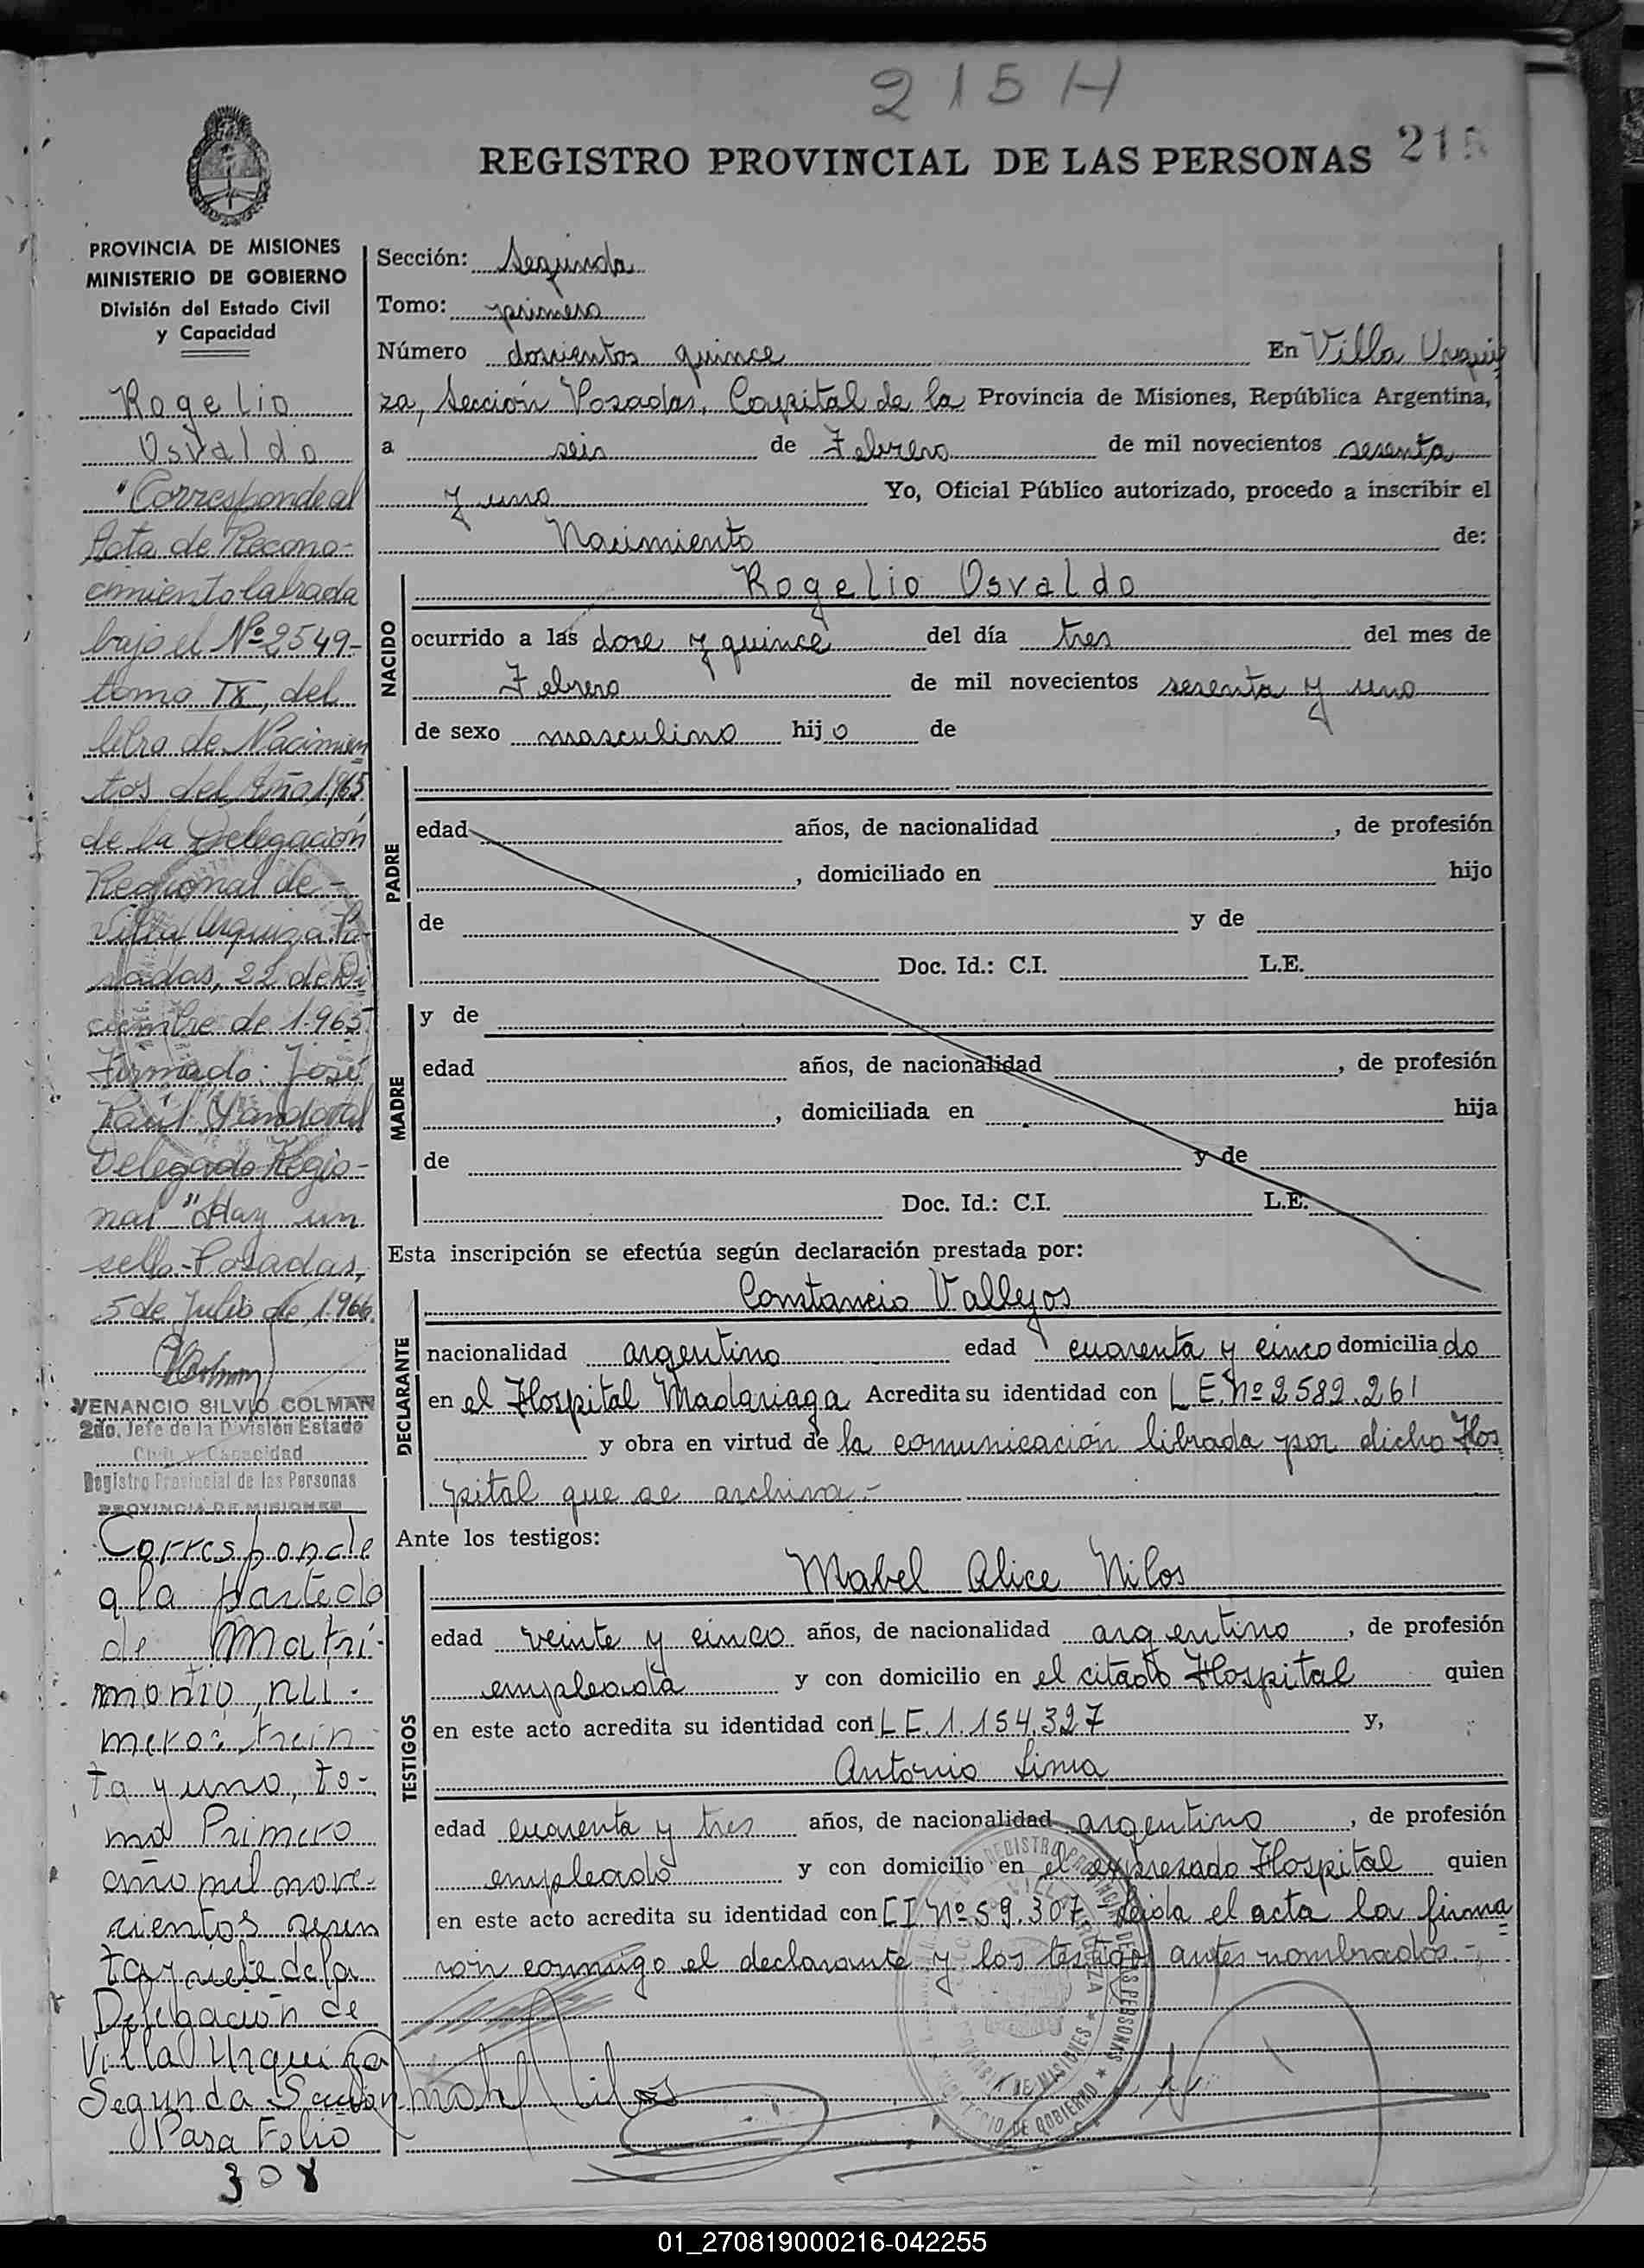 215 H
REGISTRO PROVINCIAL DE LAS PERSONAS
215
PROVINCIA DE MISIONES
MINISTERIO DE GOBIERNO
División del Estado Civil
y Capacidad
Rogelio
Osvaldo
"Corresponde al
Acta de Recono-
cimiento labrada
bajo el Nº 2549-
tomo IX, del
libro de Nacimien
tos del Año 1965
de la Delegación
Regional de -
Villa Urquiza Po-
sadas, 22 de Di
ciembre de 1.965
Firmado: José
Raúl Sandoval
Delegado Regio-
nal" Hay un
sello.- Posadas,
5 de Julio de 1.966.
VENANCIO SILVIO COLMAN
2do. Jefe de la División Estado
Civil y Capacidad
Registro Provincial de las Personas
PROVINCIA DE MISIONES
Corresponde
a la parte do
de Matri-
monio, nú-
mero: trein-
ta y uno, to-
mo Primero
año mil nove-
cientos sesen
ta y siete de la
Delegación de
Villa Urquiza
Segunda Sección
Pasa Folio
308
Sección: Segunda
Tomo: primero
Número doscientos quince En Villa Urqui
za, Sección Posadas, Capital de la Provincia de Misiones, República Argentina,
a seis de Febrero de mil novecientos sesenta
y uno Yo, Oficial Público autorizado, procedo a inscribir el
Nacimiento de:
NACIDO
Rogelio Osvaldo
ocurrido a las doce y quince del día tres del mes de
Febrero de mil novecientos sesenta y uno
de sexo masculino hijo de
PADRE
edad años, de nacionalidad , de profesión
, domiciliado en hijo
de y de
Doc. Id.: C.I. L.E.
MADRE
y de
edad años, de nacionalidad , de profesión
, domiciliada en hija
de y de
Doc. Id.: C.I. L.E.
Esta inscripción se efectúa según declaración prestada por:
DECLARANTE
Constancio Vallejos
nacionalidad argentino edad cuarenta y cinco domiciliado
en el Hospital Madariaga Acredita su identidad con L E. Nº 2582.261
y obra en virtud de la comunicación librada por dicho Hos
pital que se archiva.-
Ante los testigos:
TESTIGOS
Mabel Alice Nilos
edad veinte y cinco años, de nacionalidad argentino, de profesión
empleada y con domicilio en el citado Hospital quien
en este acto acredita su identidad con L E. 1.154.327 y,
Antonio Lima
edad cuarenta y tres años, de nacionalidad argentino, de profesión
empleado y con domicilio en el expresado Hospital quien
en este acto acredita su identidad con C I Nº 59.307 Leida el acta la firma
ron conmigo el declarante y los testigos antes nombrados.-
01_270819000216-042255